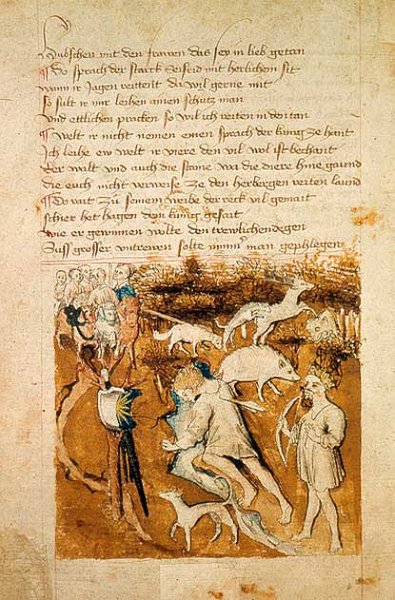 Hubschen mit den frawen das sey in lieb getan
Do sprach der starck Seifrid mit herlichem sit
wann ir Jagen reitent da wil gerne mit
so sult ir mir leihen ainen schutz man
und ettlichen pracken so wil ich reiten in den tan
Welt ir nicht nemen einen sprach der kunig ze hant
Ich leihe ew welt ir viere den vil wol ist bechant
Der walt und auch die staine wa die diere hine gaund
die euch nicht verweise ze den herbergen reiten laund
Do rait zu seinem weibe der reck vil gemait
schier het hagen dem kunig gesait
wie er gewinnen wolte den trewlichen degen
Suss grosser untrewen solte nymmer man gephlegen